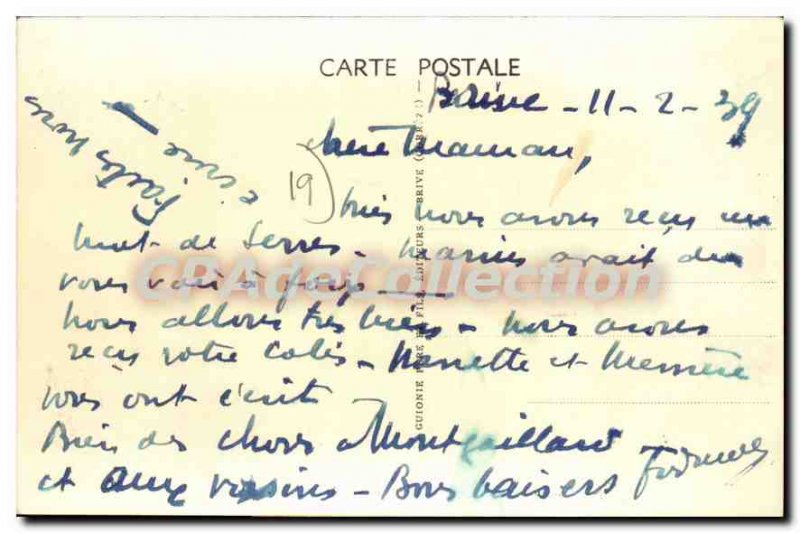 CARTE POSTALE
Brive - 11 - 2 - 39
Chère Maman,
19
hier nous avons reçu un
mot de Serres - Marius avait dû
vous voir à
nous allons très bien - nous avons
reçu votre colis - Nanette et Mémère
vous ont écrit -
Bien des choses à Montgaillard
et aux voisins - Bons baisers
Faites nous
écrire
GUIONIE PÈRE ET FILS, ÉDITEURS - BRIVE
CPAdeCollection